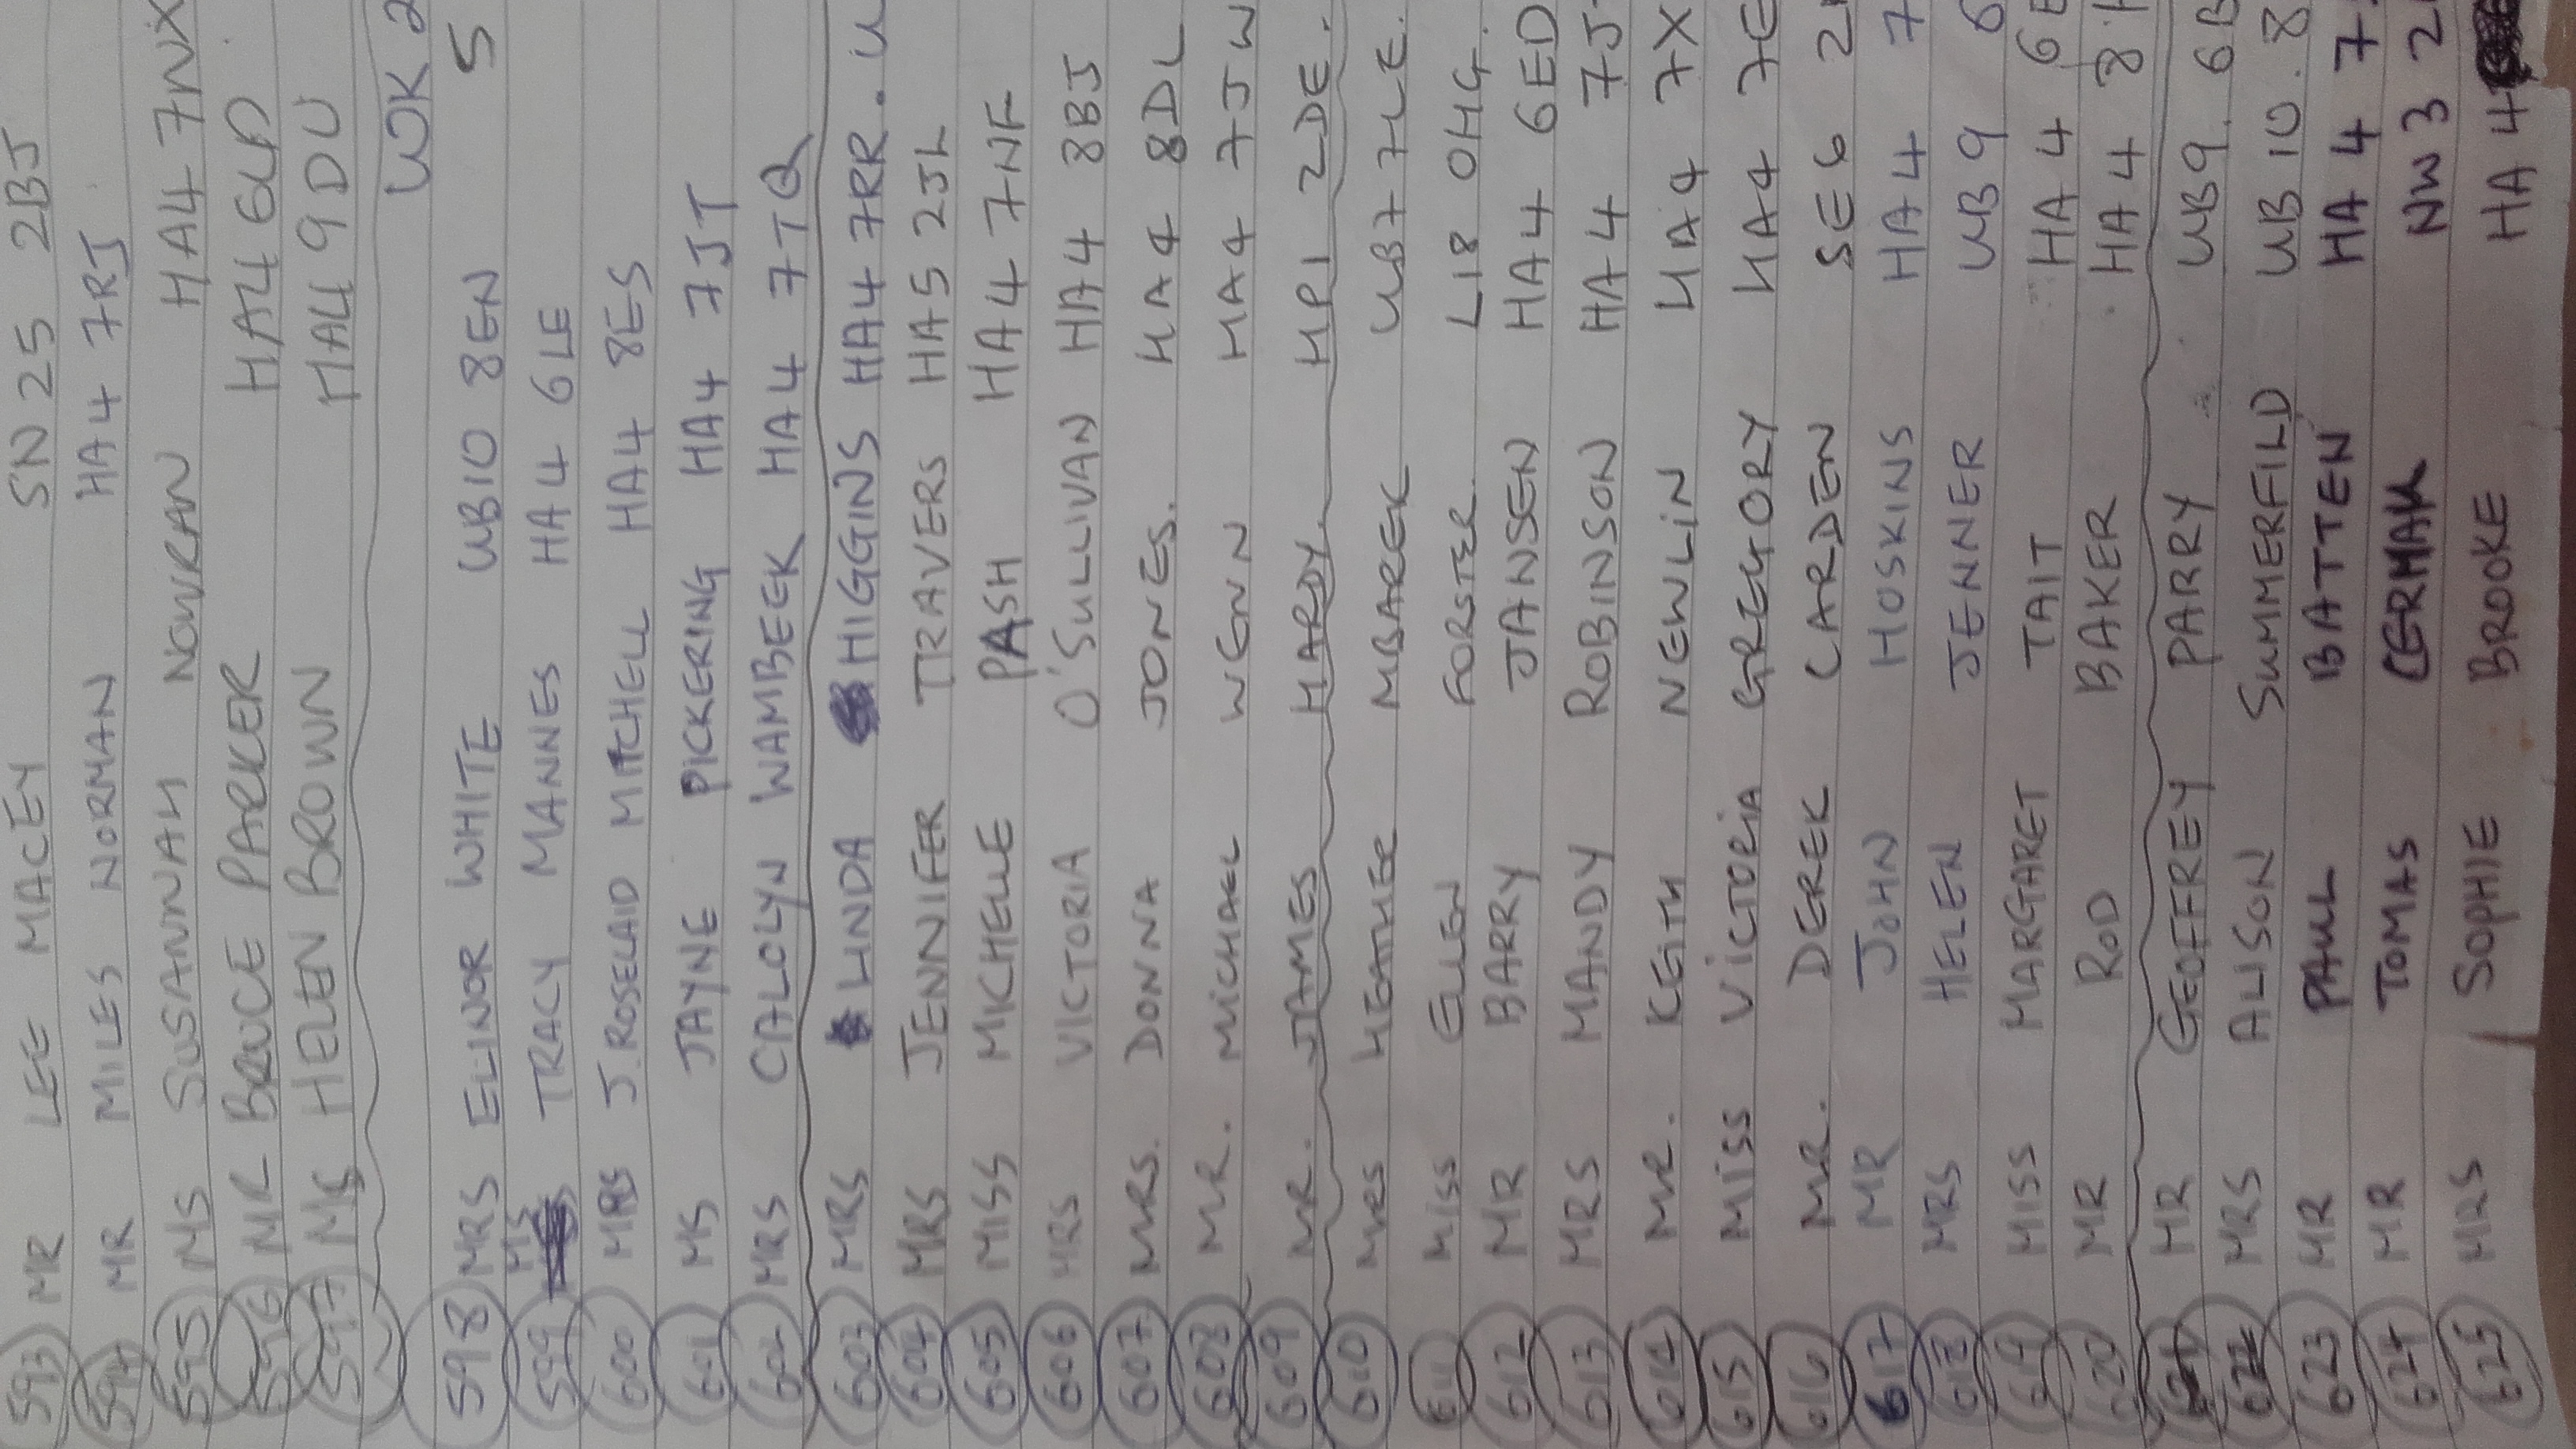 593 MR LEE MACEY SN25 2BJ
594 MR MILES NORMAN HA4 7RJ
595 MS SUSANNAH NOWRAN HA4 7NX
596 MR BRUCE PARKER HA4 6LD
597 MS HELEN BROWN HA4 9DU
WK 2
598 MRS ELINOR WHITE UB10 8EN 5
599 MS TRACY MANNES HA4 6LE
600 MRS J. ROSELAID MITCHELL HA4 8ES
601 MS JAYNE PICKERING HA4 7JT
602 MRS CALOLYN WAMBEEK HA4 7TQ
603 MRS LINDA HIGGINS HA4 7RR.
604 MRS JENNIFER TRAVERS HA5 2JL
605 MISS MICHELLE PASH HA4 7NF
606 MRS VICTORIA O'SULLIVAN HA4 8BJ
607 MRS. DONNA JONES. HA4 8DL
608 MR. MICHAEL WENN HA4 7JW
609 MR. JAMES HARDY. HP1 2DE.
610 MRS HEATHER MBAREK UB7 7LE.
611 MISS ELLEN FORSTER. L18 0HG.
612 MR BARRY JANSEN HA4 6ED
613 MRS MANDY ROBINSON HA4 7J
614 MR. KEITH NEWLIN HA4 7X
615 MISS VICTORIA GREGORY HA4 7E
616 MR. DEREK CARDEN SE6 2
617 MR JOHN HOSKINS HA4 7
618 MRS HELEN JENNER UB9 6
619 MISS MARGARET TAIT HA4 6
620 MR ROD BAKER HA4 8
621 MR GEOFFREY PARRY UB9. 6B
622 MRS ALISON SUMMERFILD UB10. 8
623 MR PAUL BATTEN HA4 7
624 MR TOMAS CERMAK NW3 2
625 MRS SOPHIE BROOKE HA4